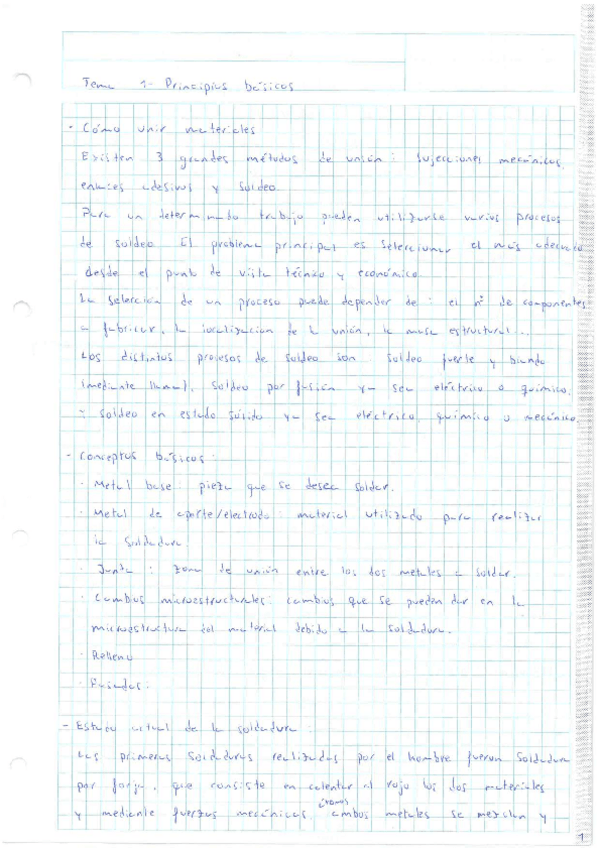 Tema 1- Principios básicos
- Cómo unir materiales
Existen 3 grandes métodos de unión: sujecciones mecánicas,
enlaces adesivos y soldeo.
Para un determinado trabajo pueden utilizarse varios procesos
de soldeo. El problema principal es seleccionar el más adecuado
desde el punto de vista técnico y económico.
La selección de un proceso puede depender de: el nº de componentes
a fabricar, la localización de la unión, la masa estructural...
Los distintos procesos de soldeo son soldeo fuerte y blando
(mediante llama), soldeo por fusión ya sea eléctrico o químico,
y soldeo en estado sólido ya sea eléctrico, químico o mecánico.
- Conceptos básicos:
· Metal base: pieza que se desea soldar.
· Metal de aporte/electrodo: material utilizado para realizar
la soldadura.
· Junta: zona de unión entre los dos metales a soldar.
· Cambios microestructurales: cambios que se pueden dar en la
microestructura del material debido a la soldadura.
· Relleno
· Pasadas:
- Estado actual de la soldadura
Las primeras soldaduras realizadas por el hombre fueron soldadura
por forja, que consiste en calentar al rojo los dos materiales
y mediante fuerzas mecánicas, ambos metales se mezclan y
1